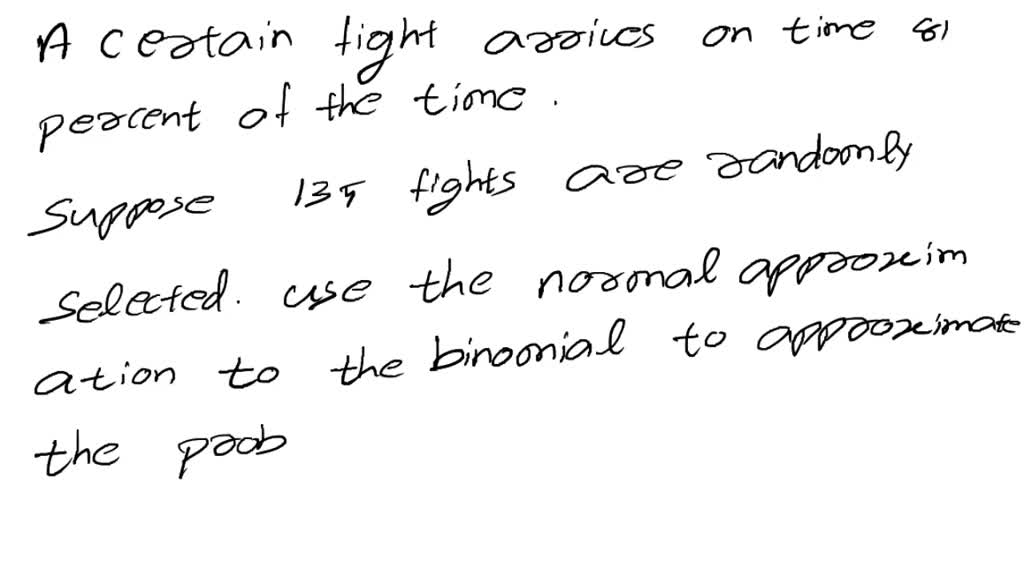 A certain fight arrives on time 81
percent of the time.
Suppose 135 fights are randomly
selected. use the normal approxim
ation to the binomial to approximate
the prob